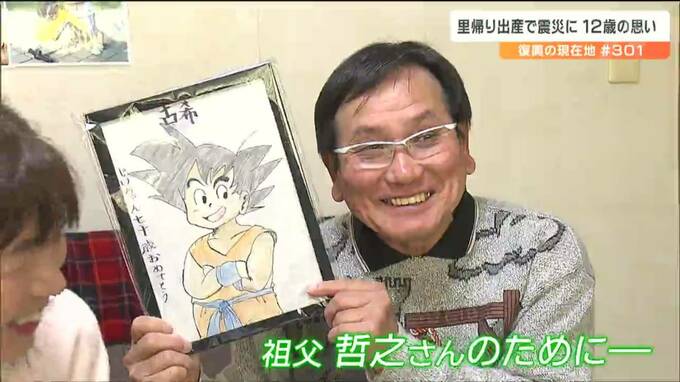 里帰り出産で震災に 12歳の思い
復興の現在地 #301
古希
じいちゃん七十歳おめでとう
祖父 哲之さんのために―